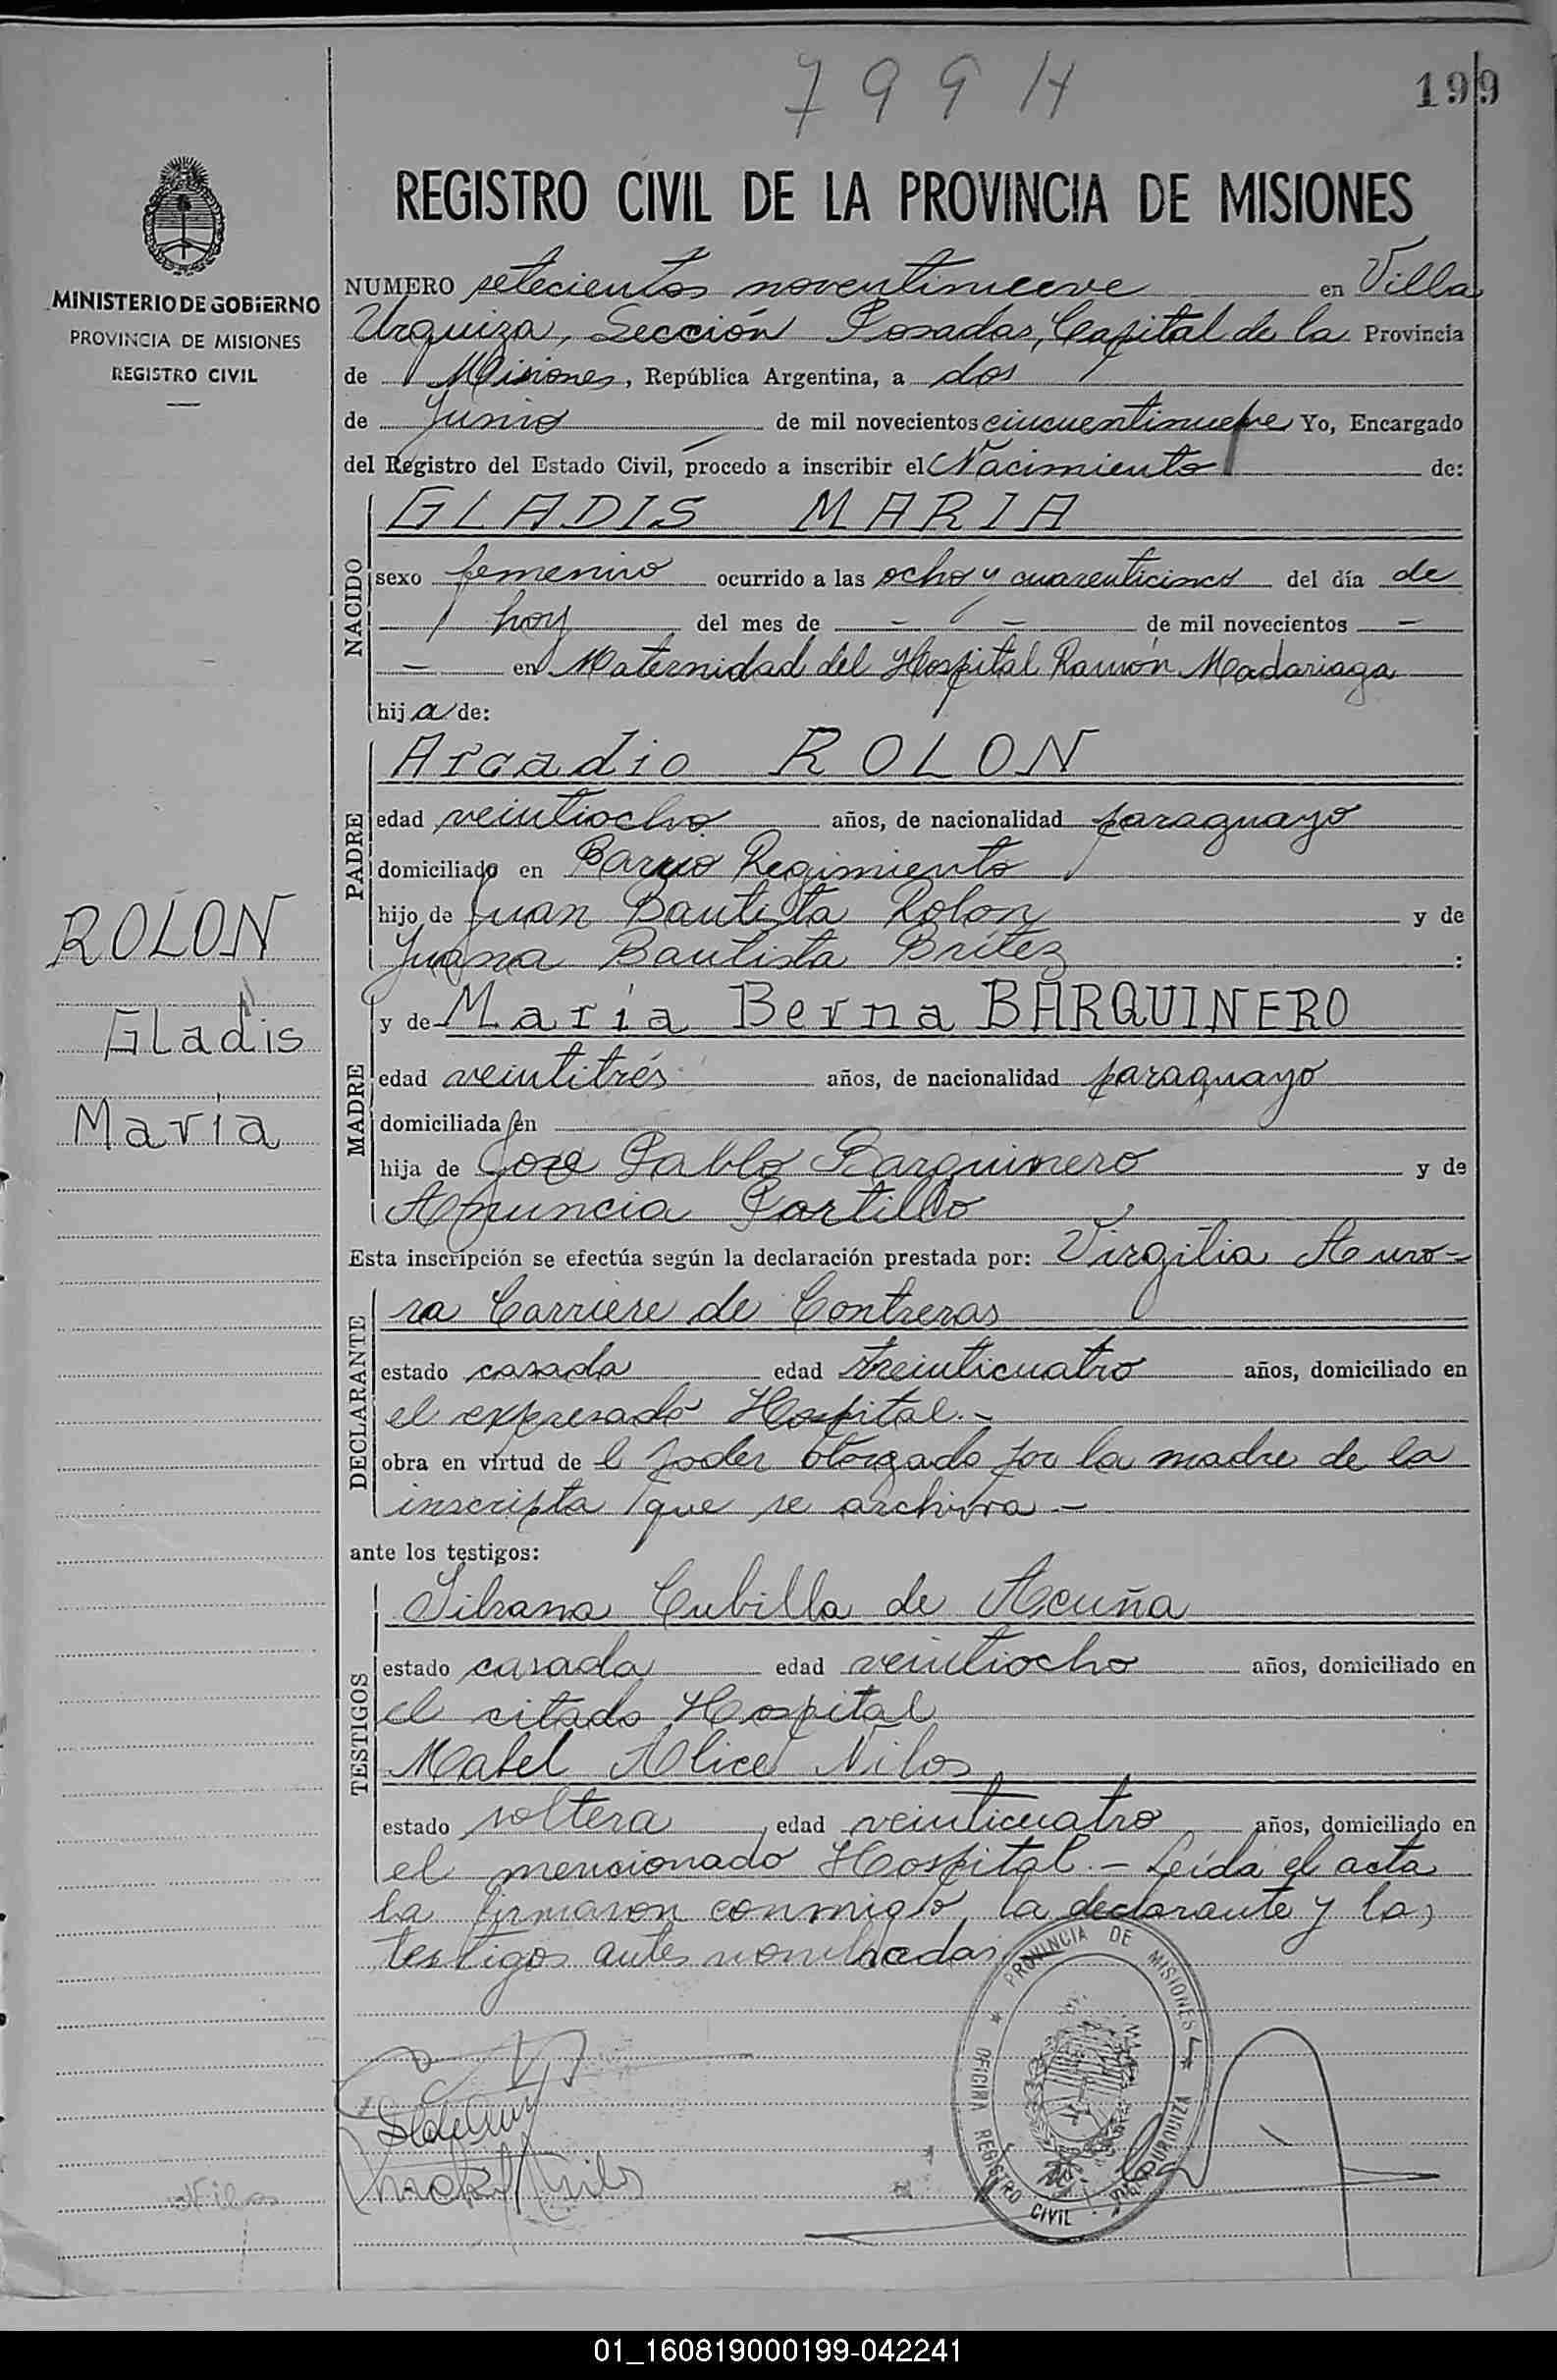 799 H
199
MINISTERIO DE GOBIERNO
PROVINCIA DE MISIONES
REGISTRO CIVIL
REGISTRO CIVIL DE LA PROVINCIA DE MISIONES
NUMERO setecientos noventinueve en Villa
Urquiza, Sección Posadas, Capital de la Provincia
de Misiones, República Argentina, a dos
de Junio de mil novecientos cincuentinueve Yo, Encargado
del Registro del Estado Civil, procedo a inscribir el Nacimiento de:
NACIDO
GLADIS MARIA
sexo femenino ocurrido a las ocho y cuarenticinco del día de
hoy del mes de - - de mil novecientos -
- en Maternidad del Hospital Ramón Madariaga
hija de:
PADRE
Arcadio ROLON
edad veintiocho años, de nacionalidad paraguayo
domiciliado en Barrio Regimiento
hijo de Juan Bautista Rolon y de
Juana Bautista Britez :
MADRE
y de María Berna BARQUINERO
edad veintitrés años, de nacionalidad paraguayo
domiciliada en
hija de José Pablo Barquinero y de
Anuncia Portillo
Esta inscripción se efectúa según la declaración prestada por: Virgilia Auro-
DECLARANTE
ra Carriere de Contreras
estado casada edad treinticuatro años, domiciliado en
el expresado Hospital.-
obra en virtud de l poder otorgado por la madre de la
inscripta que se archiva -
ante los testigos:
TESTIGOS
Silvana Cubilla de Acuña
estado casada edad veintiocho años, domiciliado en
el citado Hospital
Mabel Alice Nilos
estado soltera edad veinticuatro años, domiciliado en
el mencionado Hospital.- Leída el acta
la firmaron conmigo, la declarante y las
testigos antes nombradas
ROLON
Gladis
María
PROVINCIA DE MISIONES
OFICINA REGISTRO CIVIL
URQUIZA
01_160819000199-042241